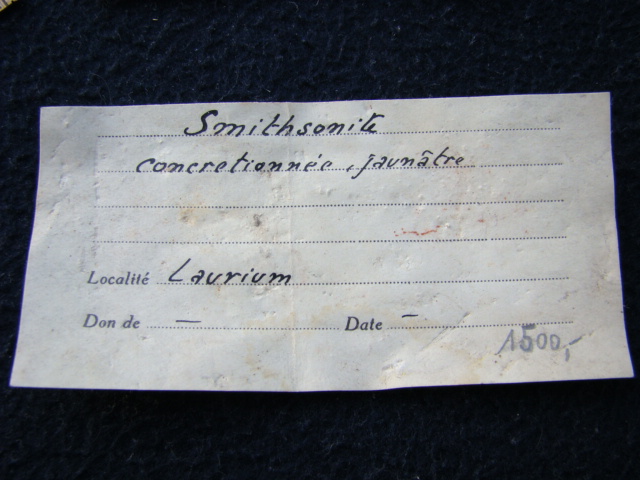 Smithsonite
concretionnée, jaunâtre
Localité Laurium
Don de — Date –
1500,-